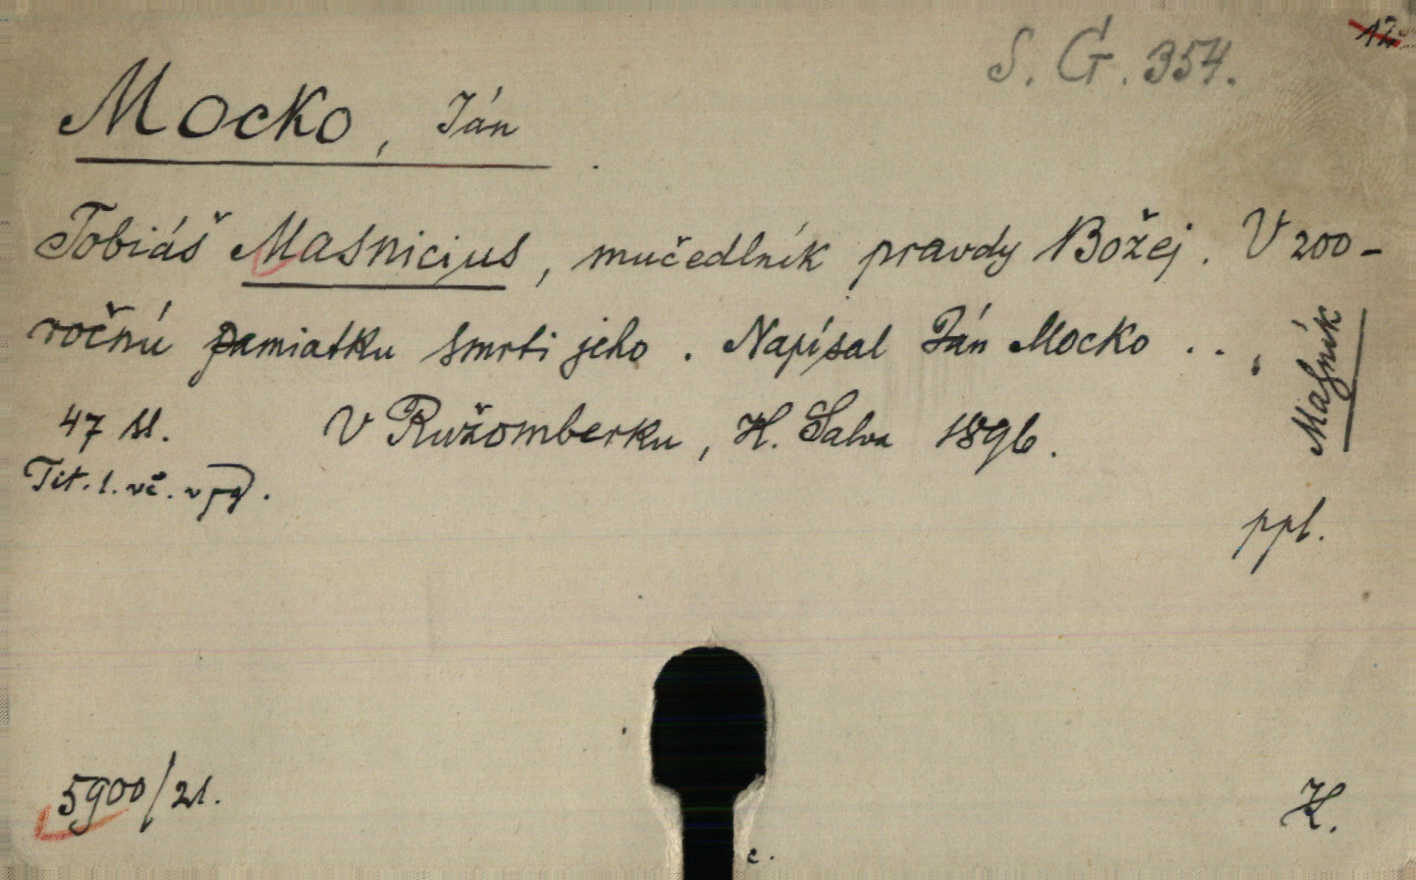 S. G. 354.
12
Mocko, Ján
Tobiáš Masnicius, mučedlník pravdy Božej. V 200-
ročnú pamiatku smrti jeho. Napísal Ján Mocko . . .
Masník
47 sl. V Ružomberku, K. Salva 1896.
Tit. l. vč. v pg.
ppl.
5900/21.
K.
c.